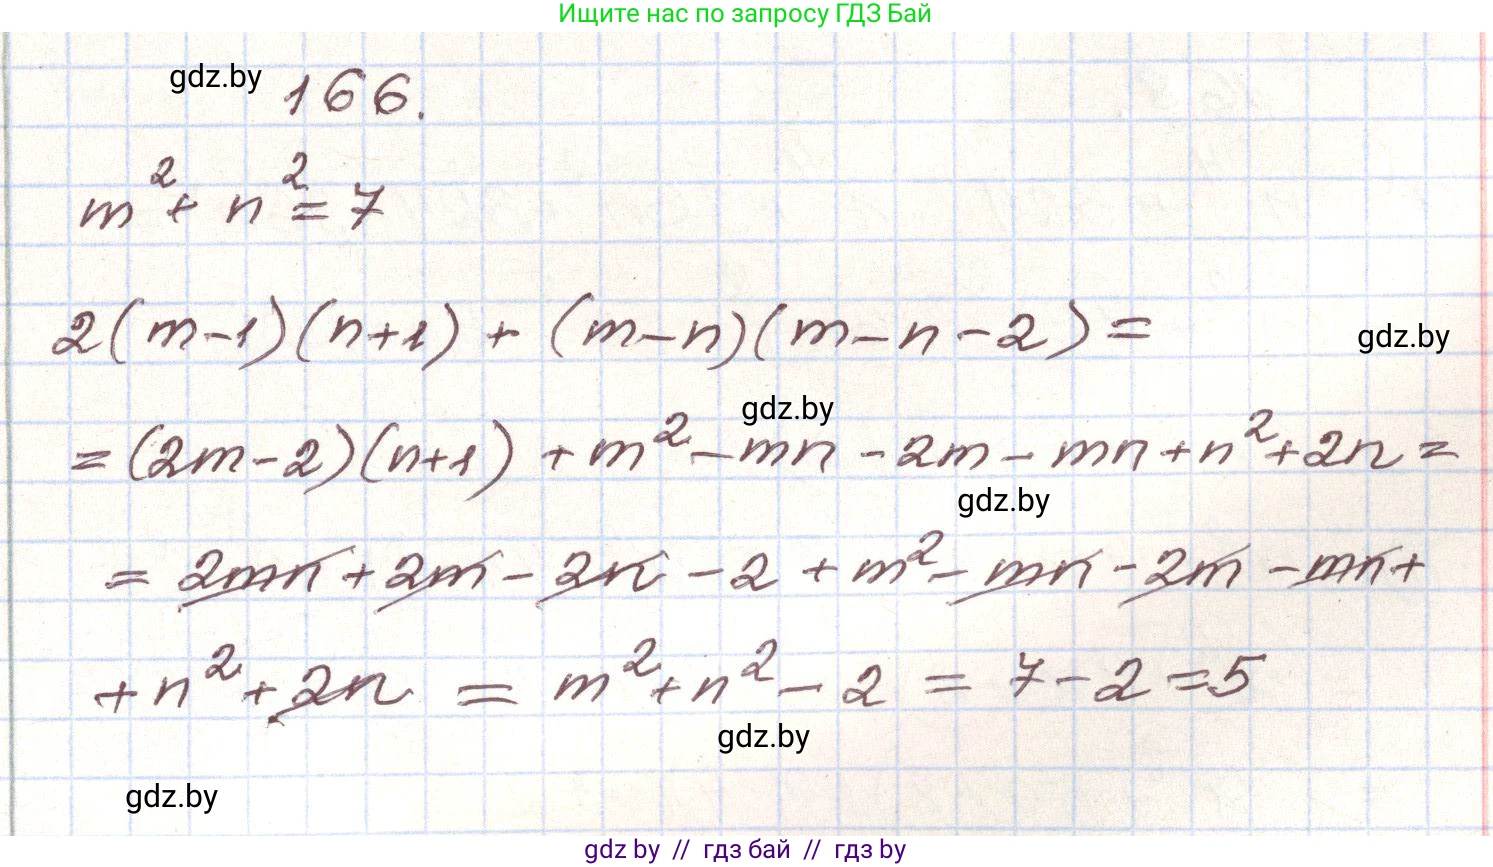 Ищите нас по запросу ГДЗ Бай
gdz.by
166.
m² + n² = 7
2(m-1)(n+1) + (m-n)(m-n-2) =
gdz.by
gdz.by
= (2m-2)(n+1) + m² - mn - 2m - mn + n² + 2n =
gdz.by
= 2mn + 2m - 2n - 2 + m² - mn - 2m - mn +
+ n² + 2n = m² + n² - 2 = 7 - 2 = 5
gdz.by
gdz.by
gdz by // гдз бай // гдз by